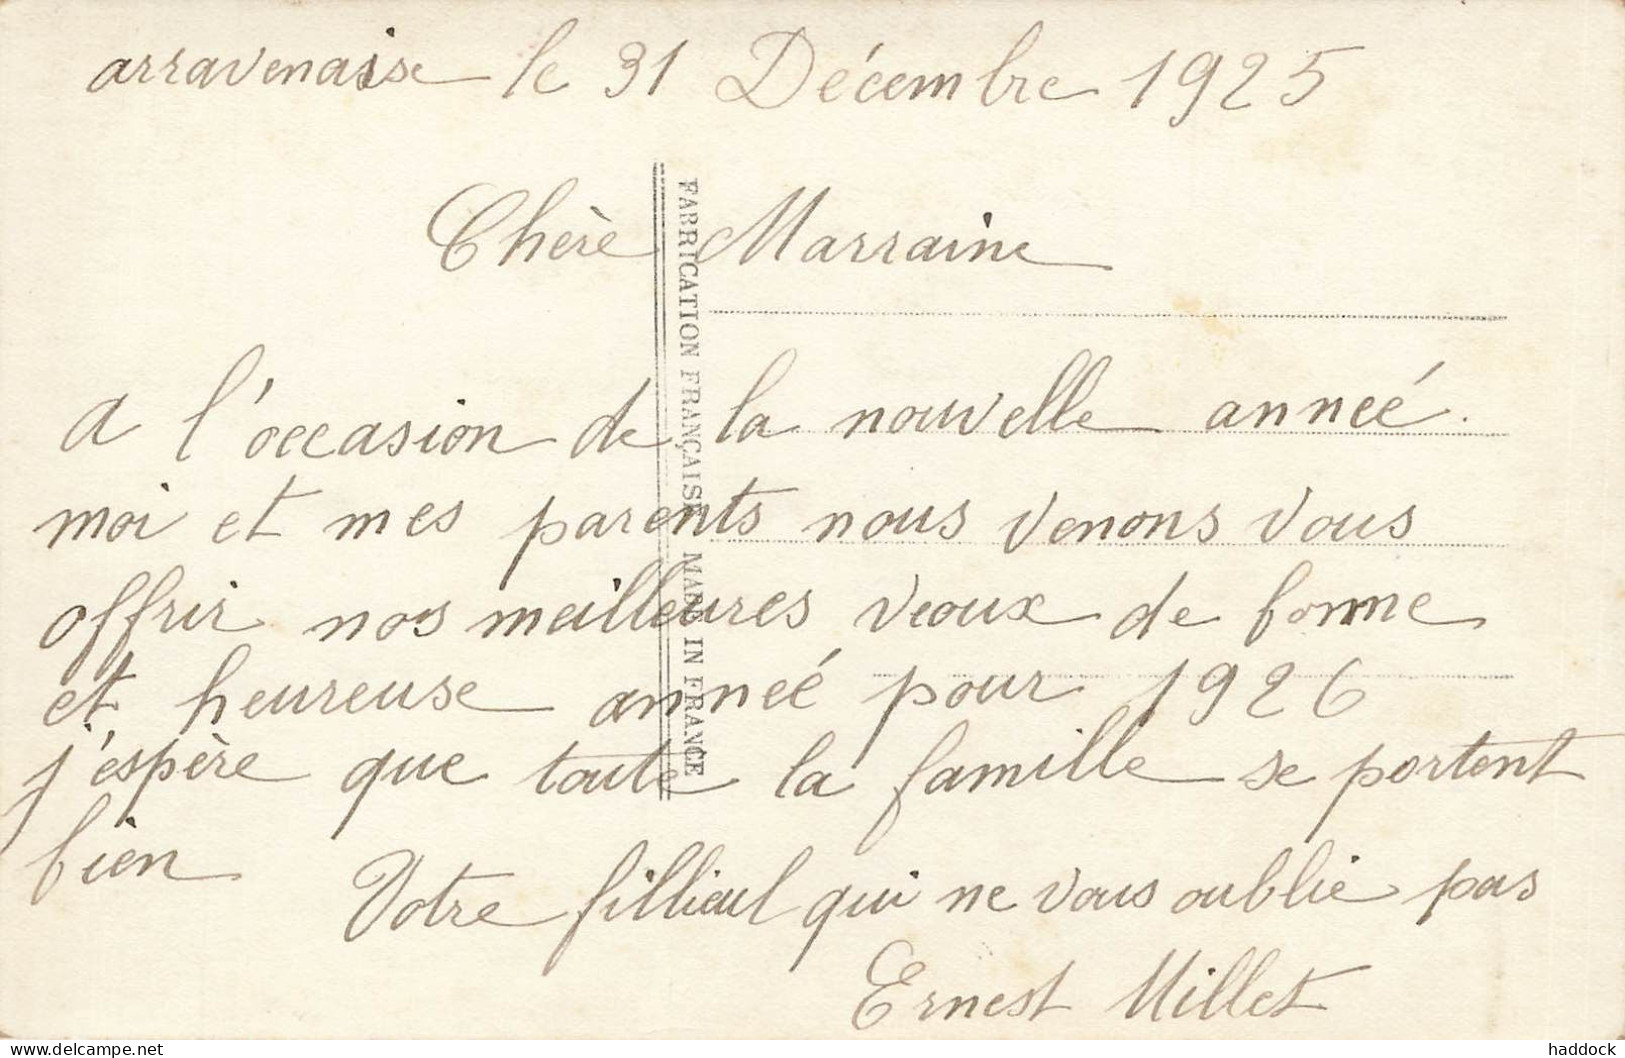 arravenaise le 31 Décembre 1925
Chère Marraine
A l'occasion de la nouvelle anneé.
moi et mes parents nous venons vous
offrir nos meilleures veoux de bonne
et heureuse anneé pour 1926
j'espère que toute la famille se portent
bien
Votre fillieul qui ne vous oublie pas
Ernest Millet
FABRICATION FRANÇAISE MADE IN FRANCE
delcampe.net
haddock